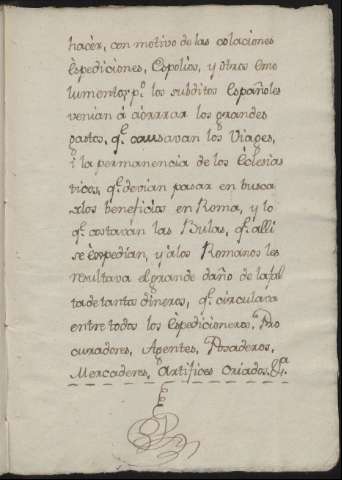 hacèr, con motivo de las colaciones
Espediciones, Espolios, y otros emo
lumentos, pº. los subditos Españoles
venian á aorrrar los grandes
gastos, q.ͤ causavan los Viages,
i la permanencia de los Eclesias
ticos, q.ͤ devian pasar en busca
de los beneficios en Roma, y lo
q.ͤ costavan las Bulas, q.ͤ alli
se èspedian, y à los Romanos les
resultava el grande daño de la fal
ta de tantos dineros, q.ͤ circulava
entre todos los Espedicioneros, Pro
curadores, Agentes, Posaderos,
Mercaderes, Artifices Criados &.ª